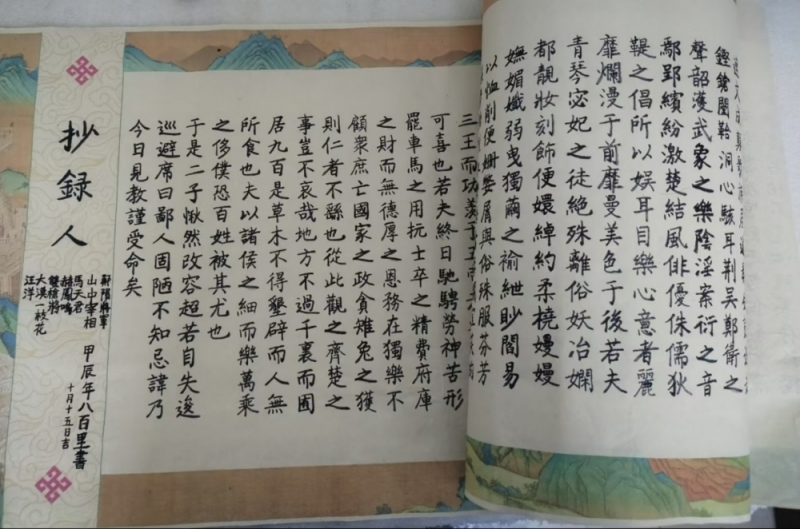 鏗鎗闛鞈洞心駭耳荊吳鄭衛之
聲韶濩武象之樂陰淫案衍之音
鄢郢繽紛激楚結風俳優侏儒狄
鞮之倡所以娱耳目樂心意者麗
靡爛漫于前靡曼美色于後若夫
青琴宓妃之徒絶殊離俗妖冶嫻
都靚妝刻飾便嬛綽約柔橈嫚嫚
嫵媚孅弱曳獨繭之褕紲眇閻易
以恤削便姍嫳屑與俗殊服芬芳
三王而功羡于五
可喜也若夫終日馳騁勞神苦形
罷車馬之用抏士卒之精費府庫
之財而無德厚之恩務在獨樂不
顧衆庶亡國家之政貪雉兔之獲
則仁者不繇也從此觀之齊楚之
事豈不哀哉地方不過千裏而囿
居九百是草木不得墾辟而人無
所食也夫以諸侯之細而樂萬乘
之侈僕恐百姓被其尤也
于是二子愀然改容超若自失逡
巡避席曰鄙人固陋不知忌諱乃
今日見教謹受命矣
抄録人
山中宰相
馬天君
雙槍將
大漠一枝花
汪洋
甲辰年八百里書
十月十五日吉